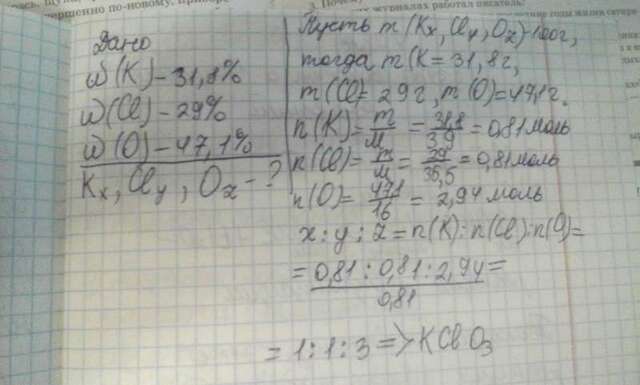 3. Почему
журналах работал писатель?
Дано
ω(K)-31,8%
ω(Cl)-29%
ω(O)-47,1%
Kx, Cly, Oz-?
Пусть m(Kx, Cly, Oz)-100г,
тогда m(K=31,8г,
m(Cl)=29г, m(O)=47,1г.
n(K)=m/M=31,8/39=0,81моль
n(Cl)=m/M=29/35,5=0,81моль
n(O)=47,1/16=2,94моль
x:y:z=n(K):n(Cl):n(O)=
=0,81:0,81:2,94/0,81=
=1:1:3=>KClO₃